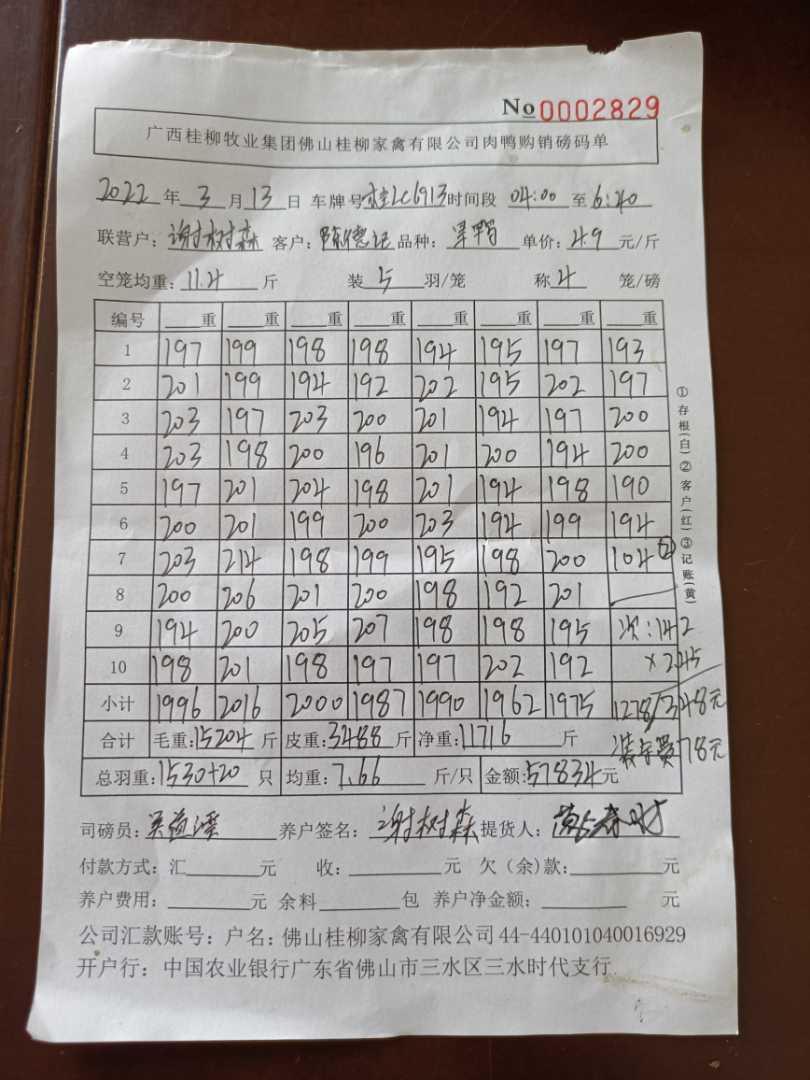 No 0002829
广西桂柳牧业集团佛山桂柳家禽有限公司肉鸭购销磅码单
2022 年 3 月 13 日 车牌号 桂LC6913 时间段 04:00 至 6:40
联营户: 谢树森 客户: 陈德记 品种: 单价: 4.9 元/斤
空笼均重: 11.4 斤 装 5 羽/笼 称 4 笼/磅
编号 重 重 重 重 重 重 重 重
1 197 199 198 198 194 195 197 193
2 201 199 194 192 202 195 202 197
3 203 197 203 200 201 194 197 200
4 203 198 200 196 201 200 194 200
5 197 201 204 198 201 194 198 190
6 200 201 199 200 203 194 199 194
7 203 214 198 199 195 198 200 104 ②
8 200 206 201 200 198 192 201
9 194 200 205 207 198 198 195 次:142
10 198 201 198 197 197 202 192 ×2.45
小计 1996 2016 2000 1987 1990 1962 1975 1278/348元
合计 毛重:15204 斤 皮重:3488 斤 净重:11716 斤 装车费78元
总羽重:1530+20 只 均重:7.66 斤/只 金额:57834元
司磅员: 养户签名: 谢树森 提货人:
付款方式:汇 元 收: 元 欠(余)款: 元
养户费用: 元 余料 包 养户净金额: 元
公司汇款账号:户名:佛山桂柳家禽有限公司 44-440101040016929
开户行:中国农业银行广东省佛山市三水区三水时代支行
①存根(白)②客户(红)③记账(黄)